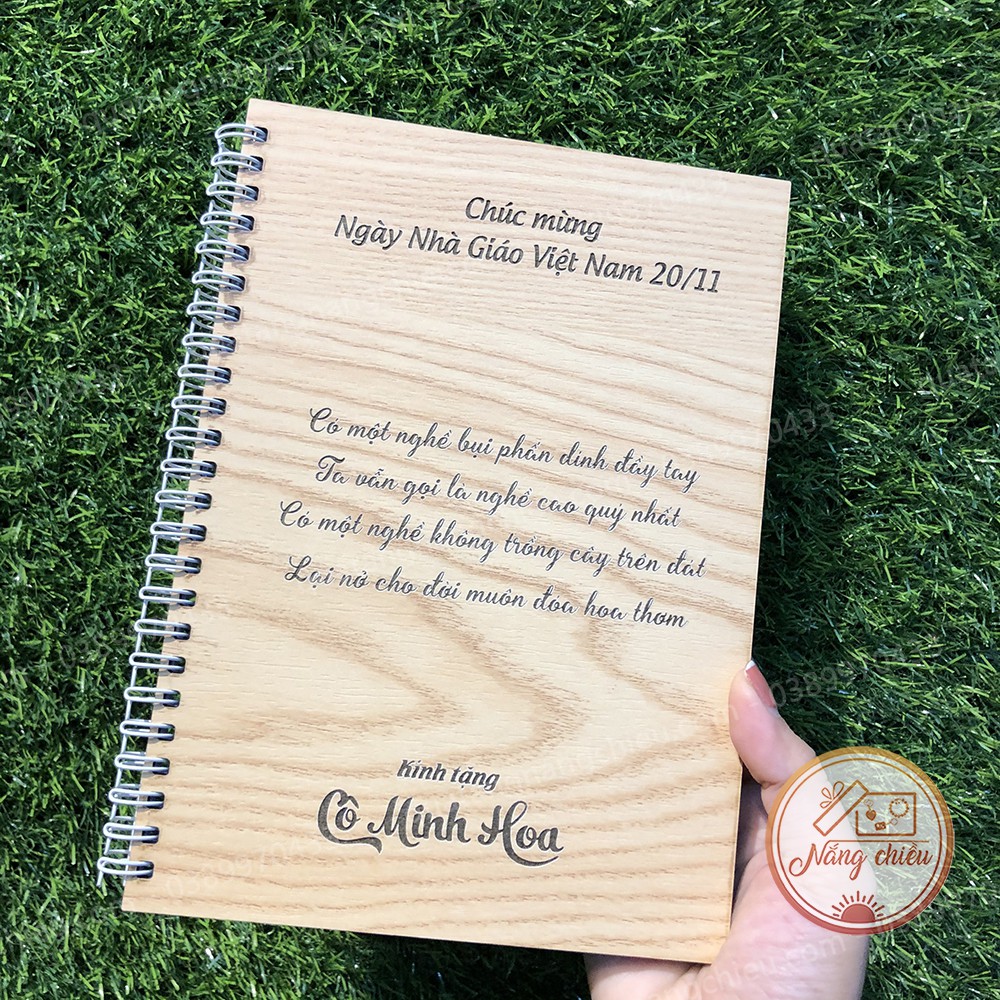 Chúc mừng
Ngày Nhà Giáo Việt Nam 20/11
Có một nghề bụi phấn dính đầy tay
Ta vẫn gọi là nghề cao quý nhất
Có một nghề không trồng cây trên đất
Lại nở cho đời muôn đóa hoa thơm
Kính tặng
Cô Minh Hoa
Nắng chiều